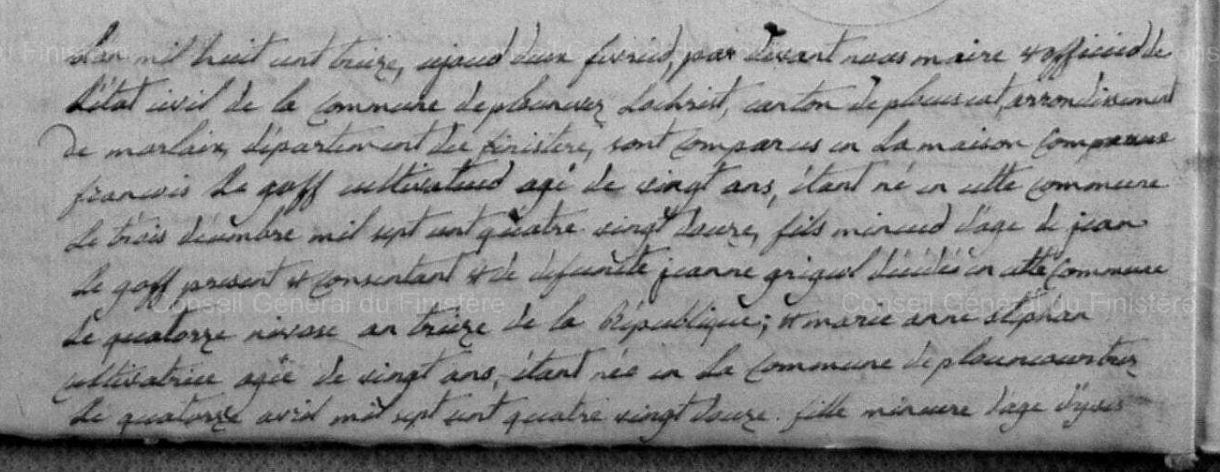 L'an mil huit cent treize, ajourd deux fevrier, par devant nous maire & officier de
L'état civil de la commune de plounevez Lochrist, canton de plouescat, arrondissement
De morlaix, département du finistère, sont comparus en La maison commune
françois Le goff cultivateur agé de vingt ans, étant né en cette commune
Le trois décembre mil sept cent quatre vingt douze, fils mineur d'age de jean
Le goff present & consentant & de defunte jeanne grigul décédé en cette commune
Le quatorze nivose an treize de la République; & marie anne stiphan
cultivatrice agée de vingt ans, étant née en La commune de plouncourtrez
Le quatorze avril mil sept cent quatre vingt douze. fille mineure d'age d'yves
Conseil Général du Finistère
Conseil Général du Finistère